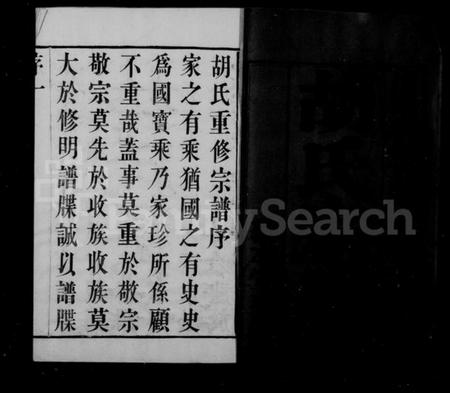 胡氏重修宗譜序
家之有乘猶國之有史史
為國寶乘乃家珍所係顧
不重哉蓋事莫重於敬宗
敬宗莫先於收族收族莫
大於修明譜牒誠以譜牒
序一
Search